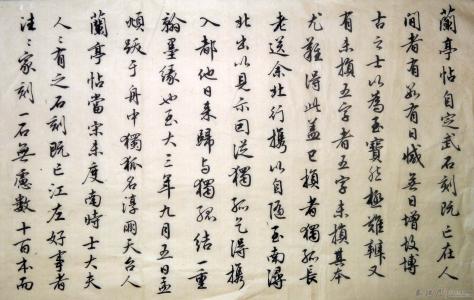 蘭亭帖自定武石刻既亡在人
間者有數有日減無日增故博
古之士以為至寶然極難辨又
有未損五字者五字未損其本
尤難得此蓋已損者獨孤長
老送余北行攜以自隨至南潯
北出以見示因從獨孤乞得攜
入都他日來歸與獨孤結一重
翰墨緣也至大三年九月五日孟
頫跋于舟中獨孤名淳朋天台人
蘭亭帖當宋未度南時士大夫
人人有之石刻既亡江左好事者
往往家刻一石無慮數十百本而